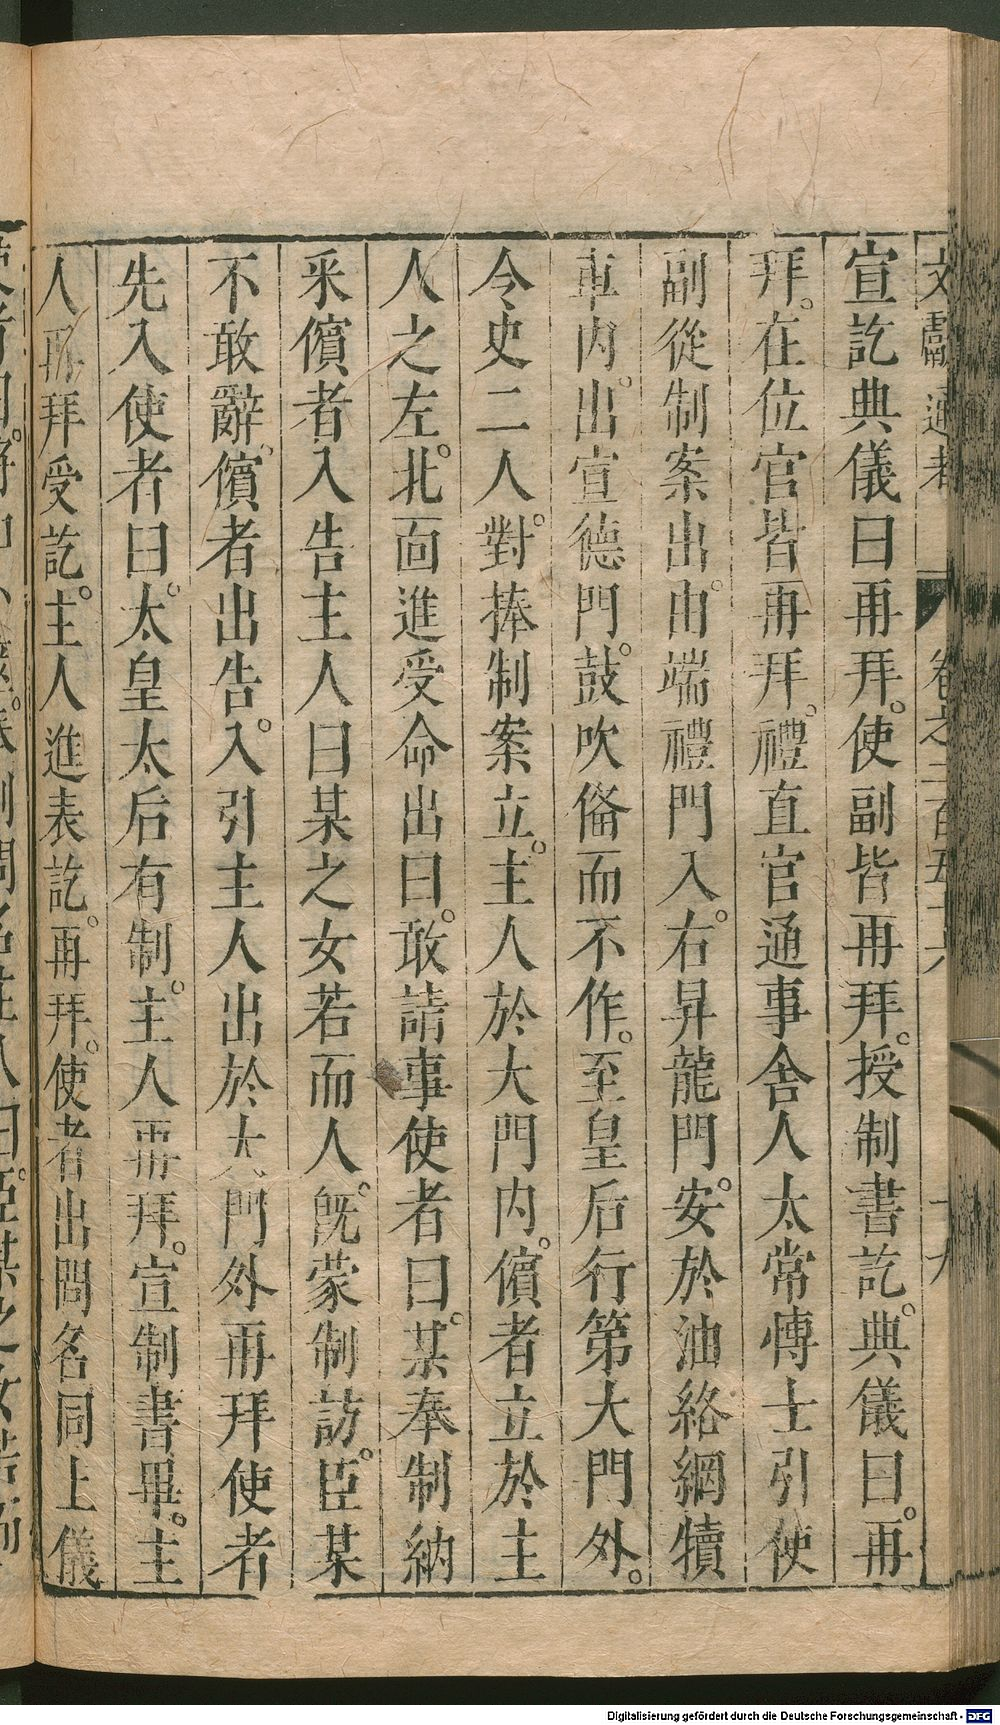 文獻通考 卷之二百五十六 十九
宣訖典儀曰再拜。使副皆再拜。授制書訖。典儀曰。再
拜。在位官皆再拜。禮直官通事舍人太常愽士引使
副從制案出。由端禮門入。右昇龍門。安於油絡網犢
車内。出宣德門。鼓吹俻而不作。至皇后行第大門外。
令史二人。對捧制案立。主人於大門内。儐者立於主
人之左。北面進受命出曰。敢請事使者曰。某奉制納
釆儐者入告主人曰某之女若而人。既蒙制訪。臣某
不敢辭。儐者出告。入引主人出於大門外再拜使者
先入使者曰。太皇太后有制。主人再拜。宣制書畢。主
人再拜受訖。主人進表訖。再拜。使者出問名同上儀
Digitalisierung gefördert durch die Deutsche Forschungsgemeinschaft - DFG